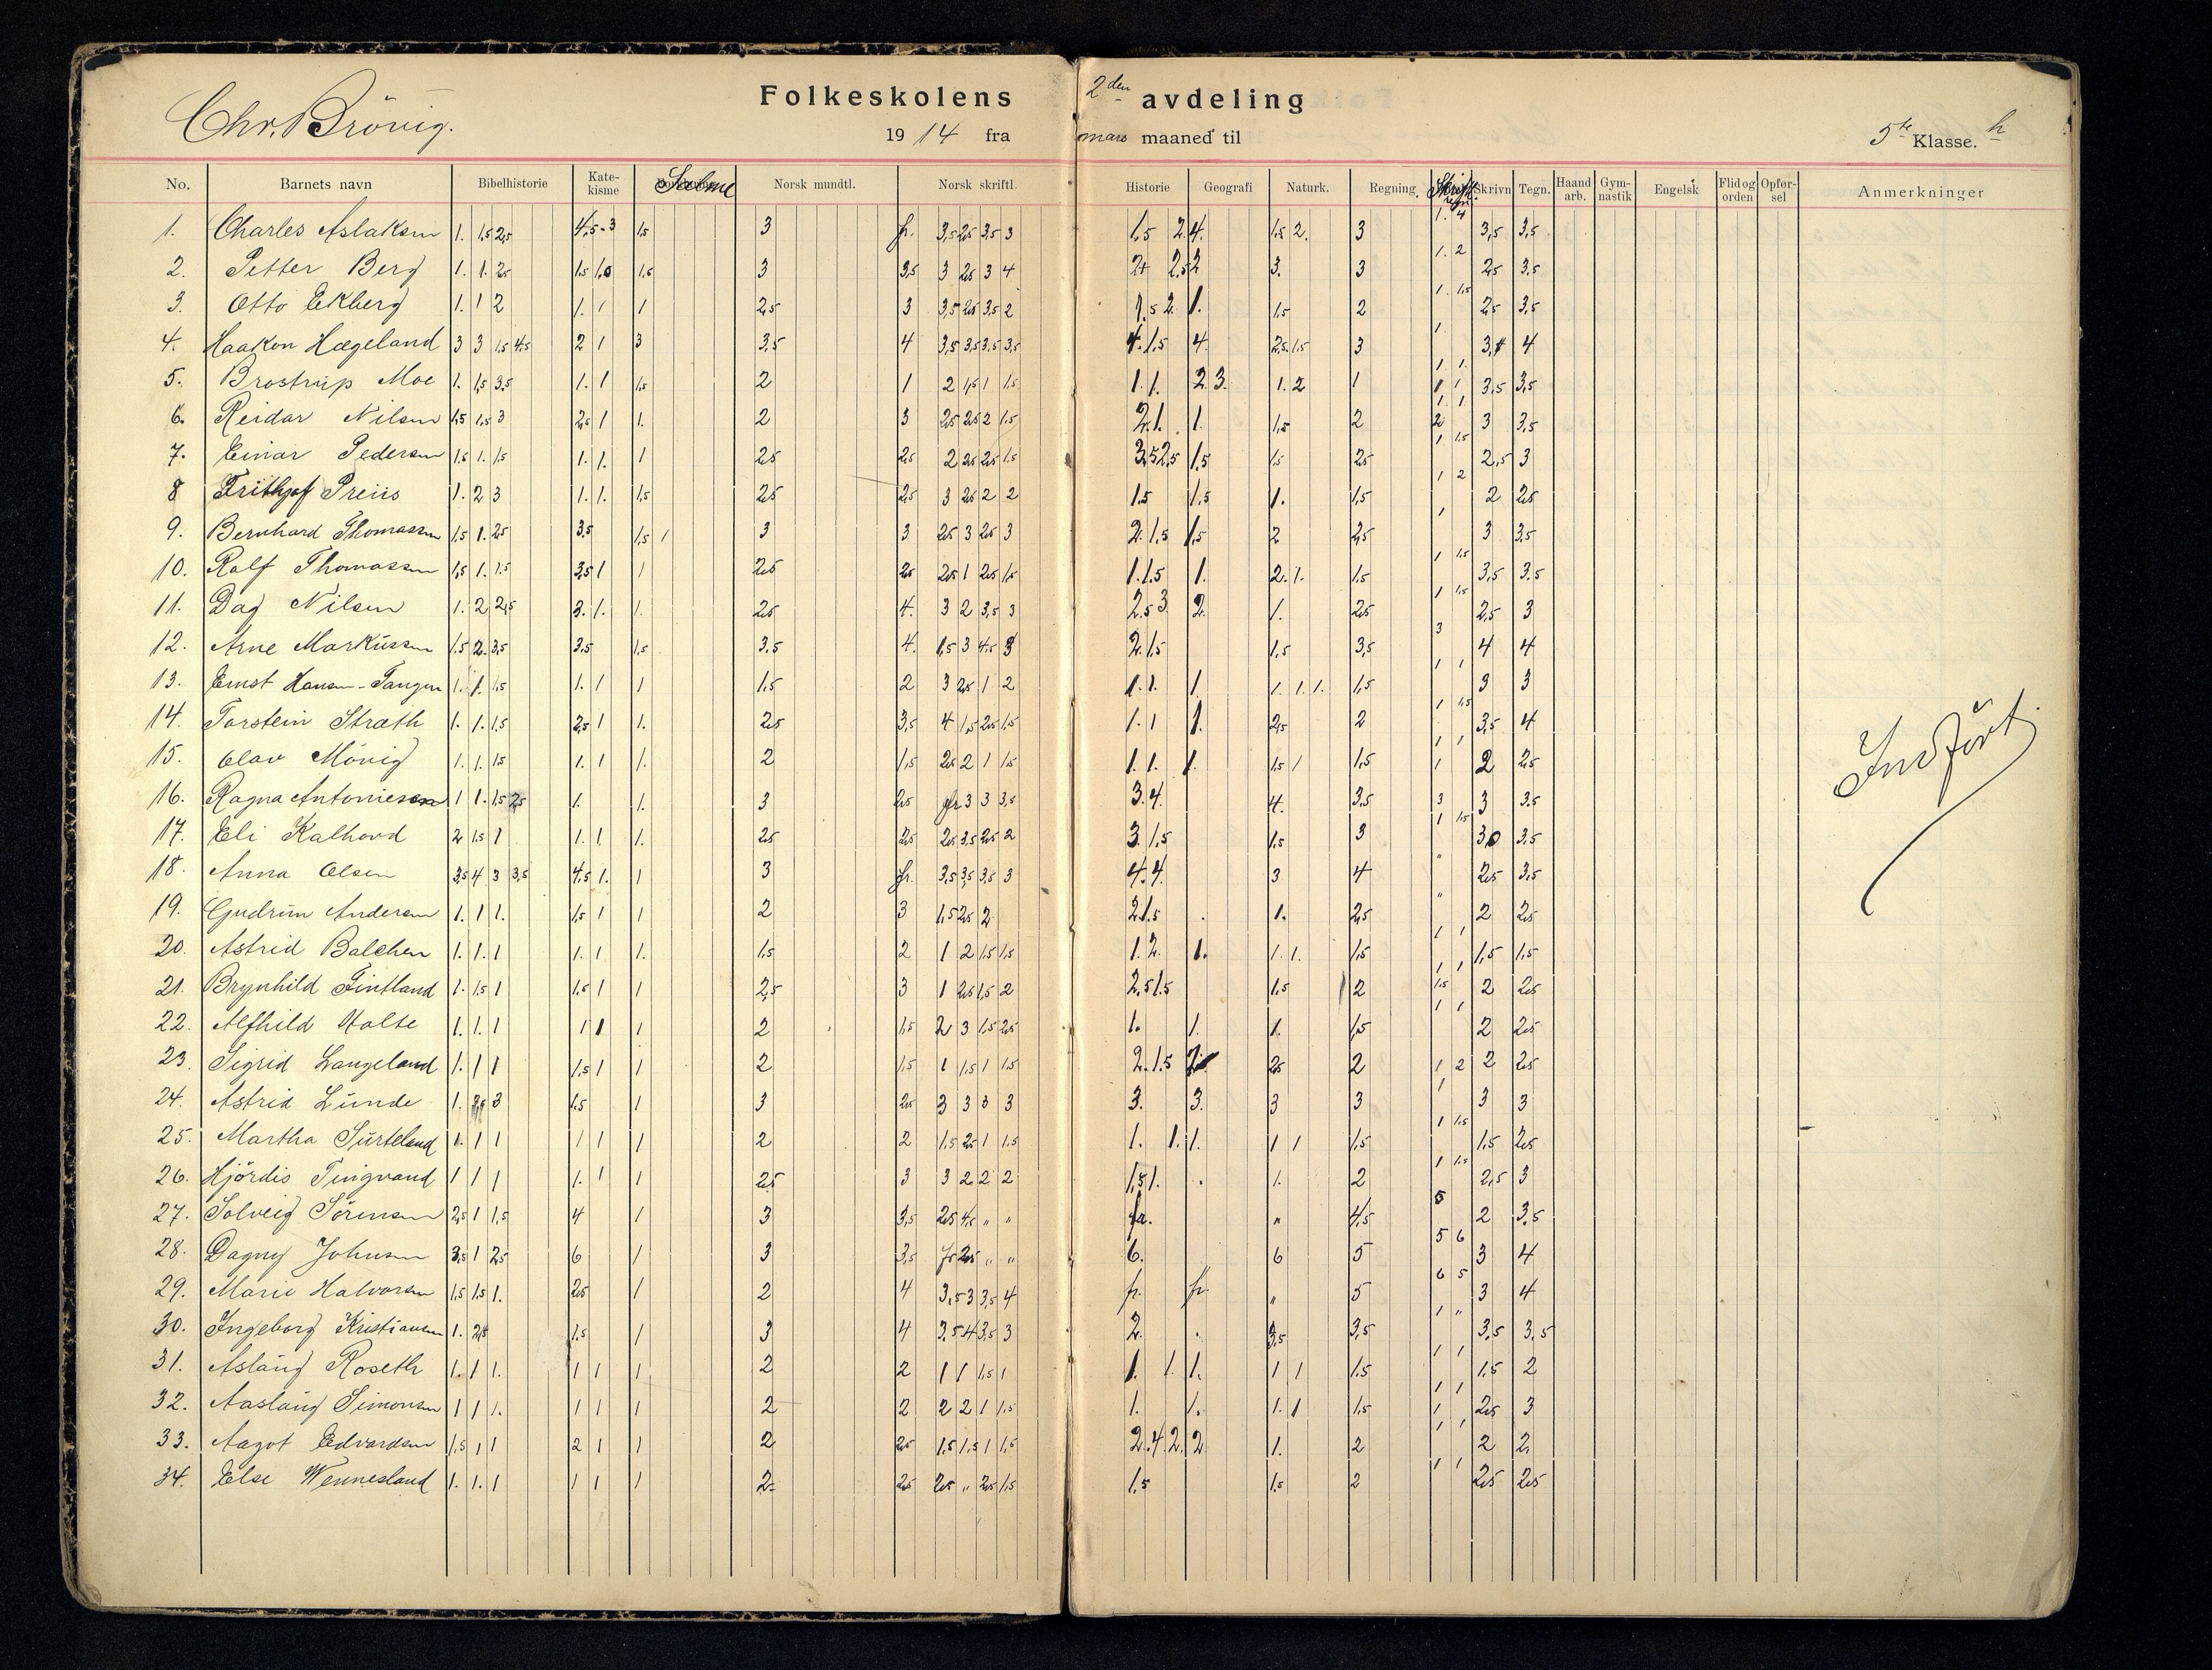 Chr. Brövig.
Folkeskolens 2den avdeling
1914 fra mars maaned til
5te Klasse. h
No. Barnets navn Bibelhistorie Kate-kisme Salme Norsk mundtl. Norsk skriftl. Historie Geografi Naturk. Regning. Skriftl. regn. Skrivn Tegn. Haand arb. Gym-nastik Engelsk Flid og orden Opfør-sel Anmerkninger
1. Charles Aslaksen 1. 1,5 2,5 4,5-3 1,5 3 fr. 3,5 2,5 3,5 3 1,5 2 4. 1,5 2. 3 1. 4 3,5 3,5
2. Petter Berg 1. 1. 2,5 1,5 1,0 1,5 3 3,5 3 2,5 3 4 2+ 2,5 2 3. 3 1. 2 2,5 3,5
3. Otto Ekberg 1. 1 2 1. 1 1 2,5 3 3,5 2,5 3,5 2 1,5 2. 1. 1,5 2 1 1,5 2,5 3,5
4. Haakon Hægeland 3 3 1,5 4,5 2 1 3 3,5 4 3,5 3,5 3,5 3,5 4. 1,5 4. 2,5. 1,5 3 1. 3,4 4
5. Brostrup Moe 1. 1,5 3,5 1. 1 1,5 2 1 2 1,5 1 1,5 1. 1. 2. 3. 1. 2 1 1. 1. 1 1 3,5 3,5
6. Reidar Nilsen 1,5 1,5 3 2,5 1 1. 2 3 2,5 2,5 2 1,5 2. 1. 1. 1,5 2 1. 1 2 3 3,5
7. Einar Pedersen 1,5 1. 1,5 1. 1. 1 2,5 2,5 2 2,5 2,5 1,5 3,5 2,5 1,5 1,5 2,5 1 1,5 2,5 3
8 Frithjof Preiis 1. 2 3 1. 1. 1,5 2,5 2,5 3 2,5 2 2 1,5 1,5 1. 1,5 1 2 2 2,5
9. Bernhard Thomassen 1,5 1. 2,5 3,5 1,5 1 3 3 2,5 3 2,5 3 2. 1,5 1,5 2 2,5 1 3 3,5
10. Ralf Thomassen 1,5 1. 1,5 3,5 1 1 2,5 2,5 2,5 1 2,5 1,5 1. 1,5 1. 2. 1. 1,5 1 1,5 3,5 3,5
11. Dag Nilsen 1. 2 2,5 3. 1. 1. 2,5 4. 3 2 3,5 3 2,5 3. 2. 1. 2,5 1 1,5 2,5 3
12. Arne Markussen 1,5 2. 3,5 3,5 1,5 3,5 4. 1,5 3 4,5 3 2. 1,5 1,5 3,5 3 4 4
13. Ernst Hansen-Tangen 1. 1. 1,5 1. 1 1 1,5 2 3 2,5 1 2 1. 1. 1 1. 1. 1. 1,5 1 1 3 3
14. Torstein Stræth 1. 1. 1,5 2,5 1 1. 2,5 3,5 4 1,5 2,5 1,5 1. 1 1. 2,5 2 1 1,5 3,5 4
15. Olav Mövig 1. 1. 1,5 1. 1 1. 2 1,5 2,5 2 1 1,5 1. 1. 1. 1,5 1 1,5 1 1 1 2 2,5
16. Ragna Antoniesen 1 1. 1,5 2,5 1. 1. 3 2,5 fr 3 3 3,5 3. 4. 4. 3,5 3 3 3,5
17. Eli Kalhovd 2 1,5 1 1. 1. 1. 2,5 2,5 2,5 3,5 2,5 2 3. 1,5 1,5 3 1 1,5 3,0 3,5
18. Anna Olsen 3,5 4 3 3,5 4,5 1. 1 3 fr. 3,5 3,5 3,5 3 4. 4. 3 4 " 2,5 3,5
19. Gudrun Andersen 1. 1 1. 1,5 1 1 2 3 1,5 2,5 2 2. 1,5 1. 2,5 " 2 2,5
20. Astrid Balchen 1. 1. 1 1. 1 1. 1,5 2 1 2 1,5 1,5 1. 2. 1. 1. 1. 1,5 1 1 1,5 1,5
21. Brynhild Fintland 1. 1,5 1 1,5 1 1 2,5 3 1 2,5 1,5 2 2,5 1,5 1,5 2 1 1 1,5 2 2,5
22. Alfhild Holte 1. 1. 1 1 1 1 2 1,5 2 3 1,5 2,5 1. 1. 1. 1,5 1 1 2 2,5
23. Sigrid Langeland 1. 1 1 1,5 1 1 2 1,5 1 1,5 1 1,5 2. 1,5 2,5 2 1 2 2 2,5
24. Astrid Lunde 1. 3 1,5 1 3 2,5 3 3 3 3 3. 3. 3 3 1 3 3
25. Martha Surteland 1. 1 1 1 1 1 2 2 1,5 2,5 1 1,5 1. 1. 1. 1 1 1,5 1 1,5 1,5 2,5
26. Hjördis Tingvand 1 1 1 1. 1 1 2,5 3 3 2 2 2 1,5 1. . 1. 2 1 1,5 2,5 3
27. Solveig Sörensen 2,5 1 1,5 4 1 3 3,5 2,5 4,5 " " fr. " 4,5 5 2 3,5
28. Dagny Johnsen 3,5 1 2,5 6 1 3 3,5 fr 2,5 " " 6. 6 5 5 6 3 4
29. Marie Halvorsen 1,5 1,5 1. 2,5 1 2 4 3,5 3 3,5 4 fr. fr. " 5 6 5 3 4
30. Ingeborg Kristiansen 1. 2,5 1,5 1 3 4 3,5 4 3,5 3 2. . 3,5 3,5 1 " 3,5 3,5
31. Aslaug Roseth 1. 1 1. 1 1 1 2 2 1 1 1,5 1 1. 1. 1. 1 1 1,5 1 1 1,5 2
32. Aaslaug Simonsen 1 1 1. 1 1 1 2 2 2 2 1 1,5 1. 1. 1. 1 1,5 1 1 1 2,5 3
33. Aagot Edvardsen 1,5 1 1 2 1 1 2 2,5 1,5 1,5 1 1,5 2. 4. 2. 2 1. 2 1 1 2 2,
34. Else Wennesland 1. 1. 1 1 1 1 2 2,5 2,5 " 2,5 1,5 1,5 1,5 2 1 1 2,5 2,5
Indført